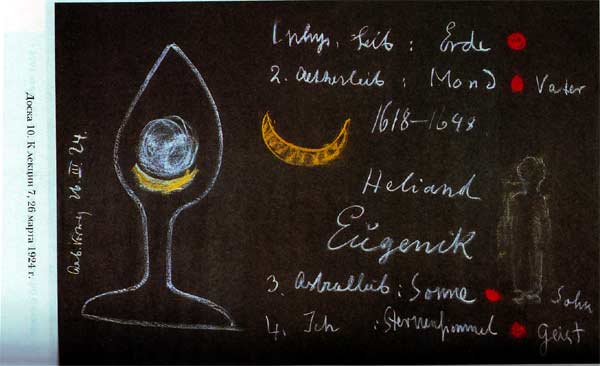 Доска 10. К лекции 7, 26 марта 1924 г.
26. III 24.
1. phys. Leib : Erde
2. Aetherleib : Mond Vater
1618–1648
Heliand
Eugenik
3. Astralleib : Sonne Sohn
4. Ich : Sternenhimmel Geist